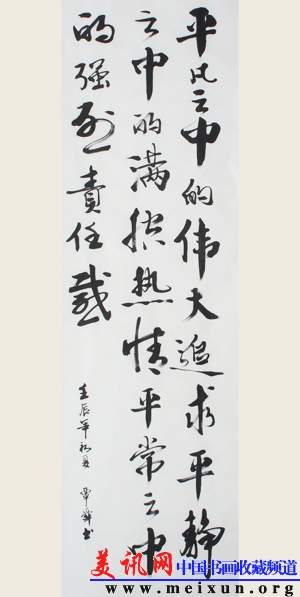 平凡之中的伟大追求平静
之中的满腔热情平常之中
的强烈责任感
壬辰年初夏 覃锋书
美讯网 中国书画收藏频道
www.meixun.org